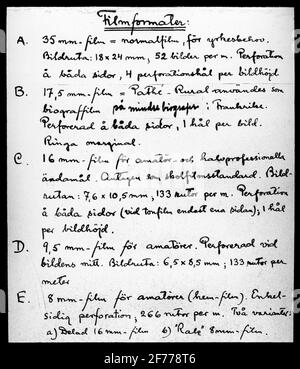 Filmformater:
A. 35 mm-film = normalfilm, för yrkesbehov.
Bildruta: 18 x 24 mm, 52 bilder per m. Perforation
å båda sidor, 4 perforationshål per bildhöjd
B. 17,5 mm-film = Pathé-Rural användes som
biograffilm på mindre biografer i Frankrike.
Perforerad å båda sidor, 1 hål per bild.
Ringa marginal.
C. 16 mm-film för amatör- och halvprofessionella
ändamål. som standard. Bild-
rutan: 7,6 x 10,5 mm, 133 rutor per m. Perforation
å båda sidor (vid tonfilm endast ena sidan), 1 hål
per bildhöjd.
D. 9,5 mm-film för amatörer. Perforerad vid
bildens mitt. Bildruta: 6,5 x 8,5 mm, 133 rutor per
meter
E. 8 mm-film för amatörer (hem-film). Enkel-
sidig perforation, 266 rutor per m. Två varianter:
a) Delad 16 mm-film b) 8 mm-film.
alamy
Image ID: 2F778T6
www.alamy.com